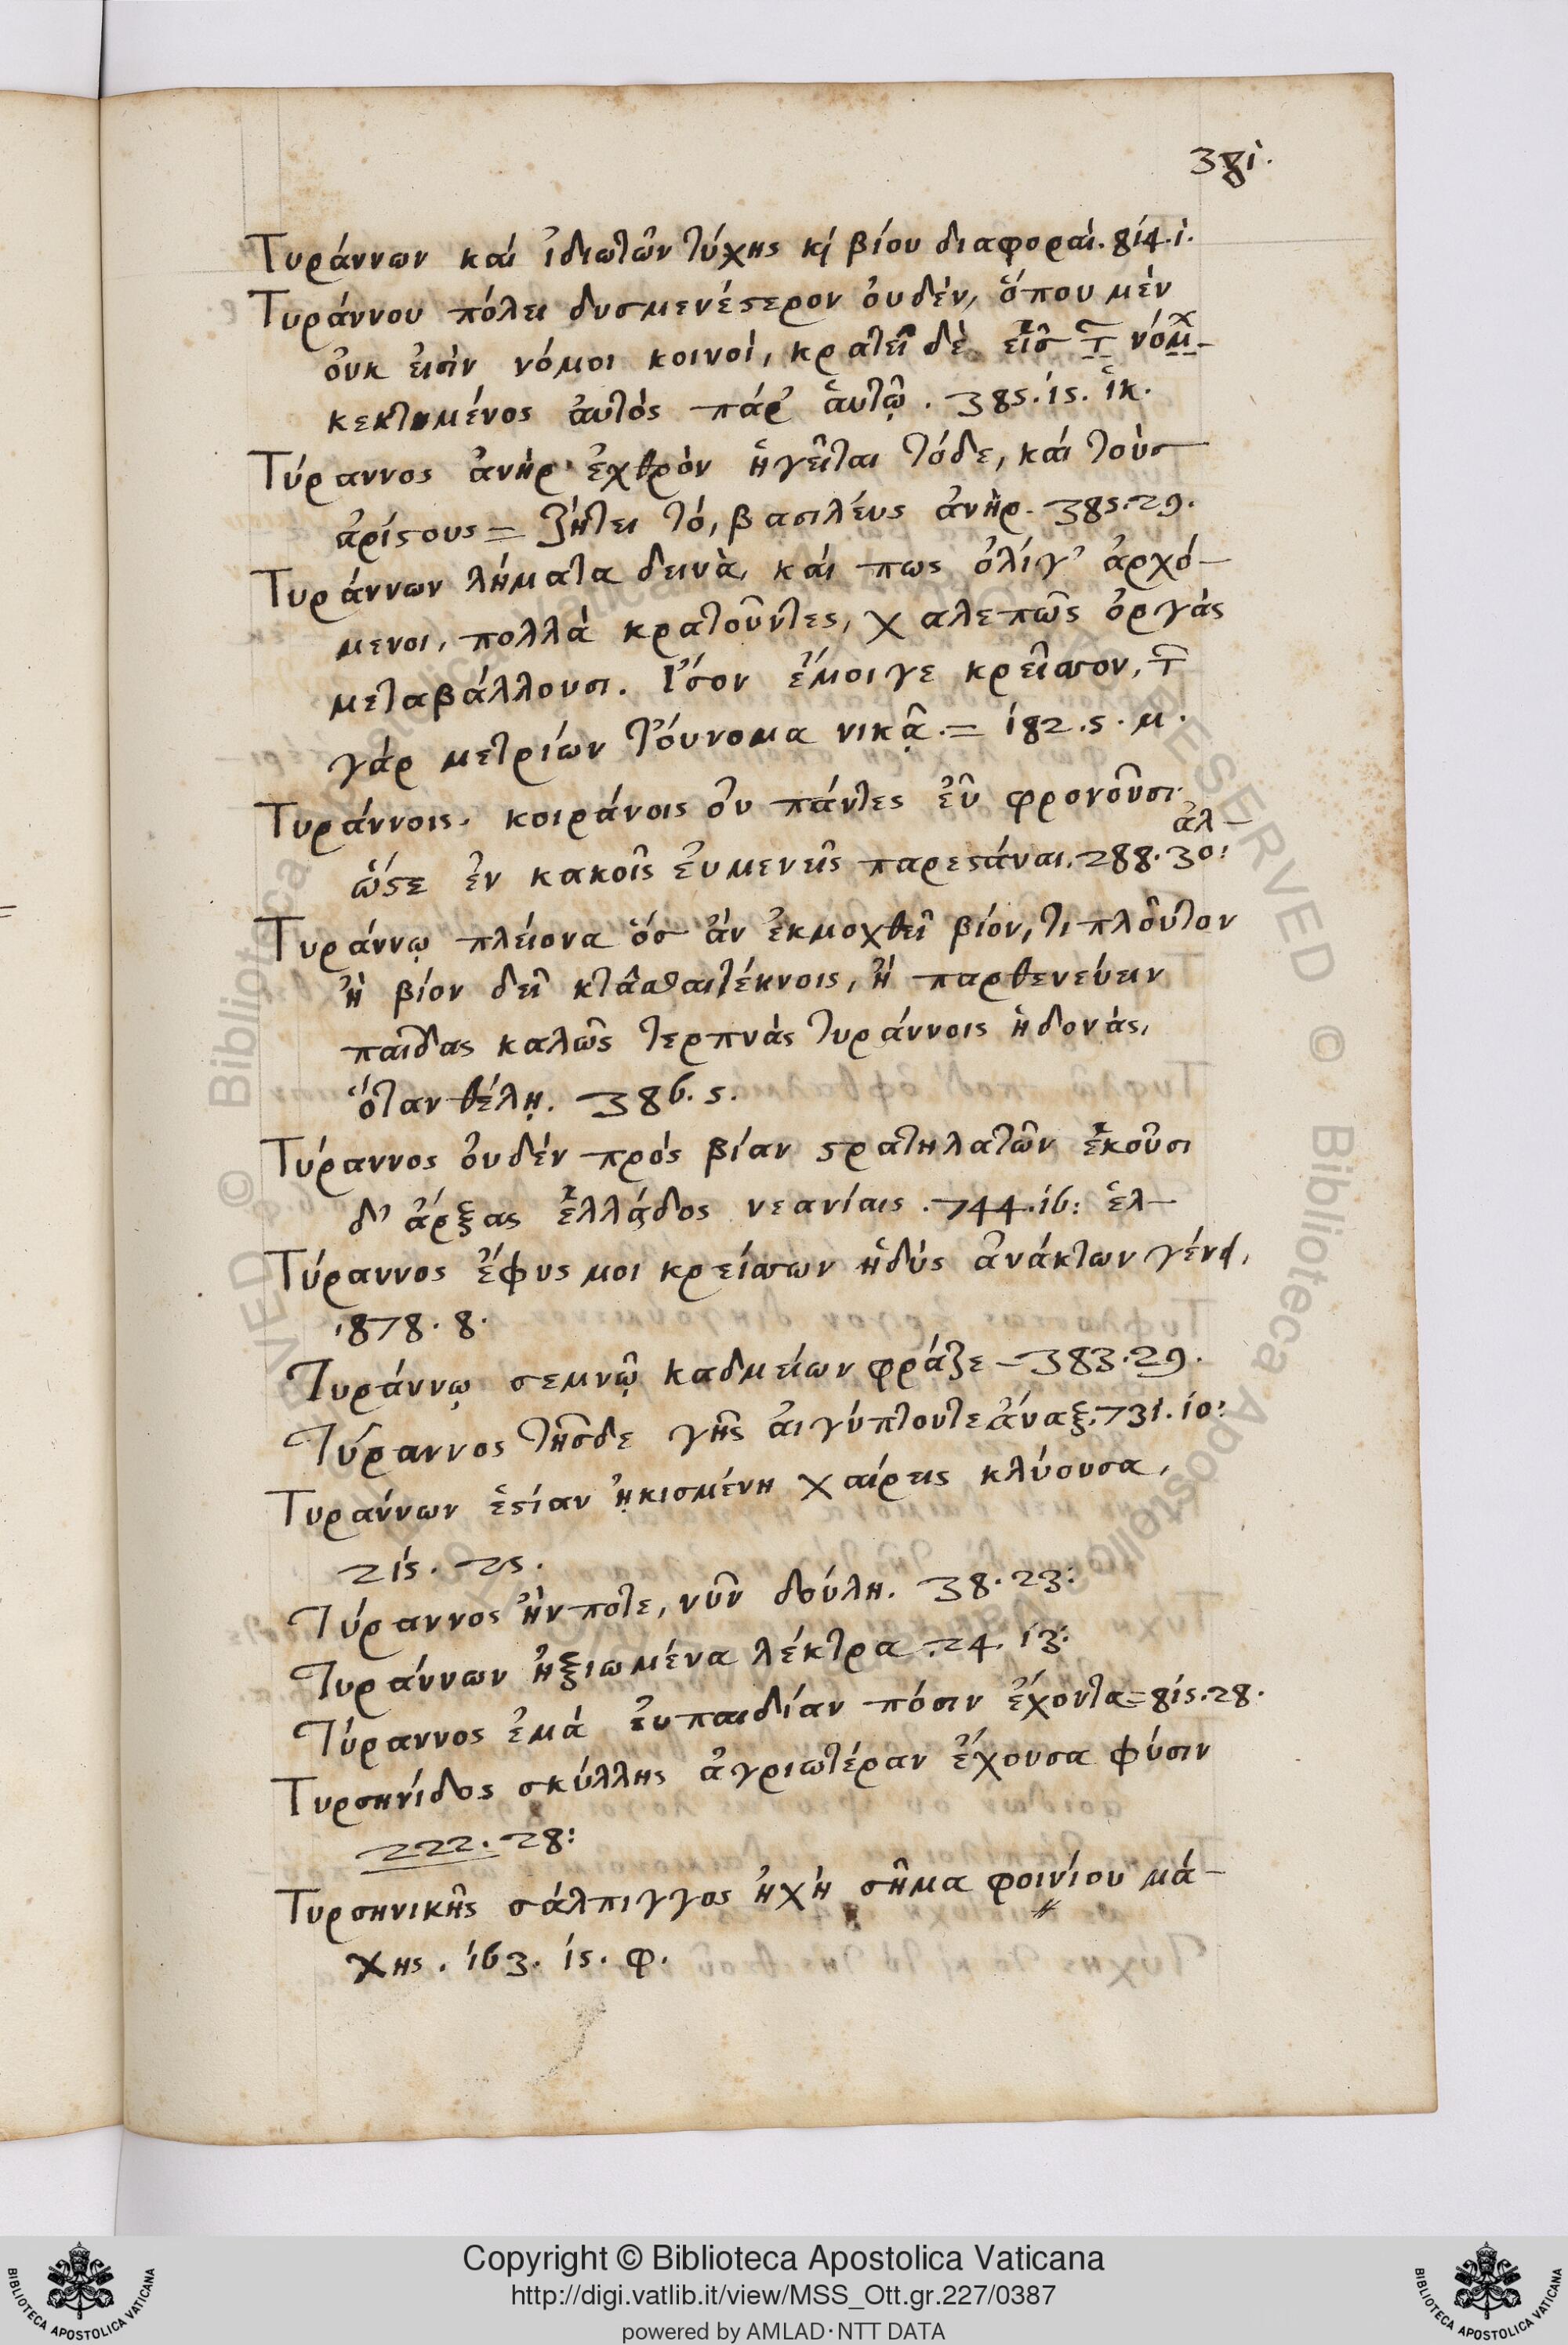 381.
Τυράννων καί ἰδιωτῶν τύχης κ̀ βίου διαφοραί. 814.1.
Τυράννου πόλει δυσμενέϛερον ὀυδέν, ὅπου μέν
ὀυκ ἐισίν νόμοι κοινοί, κρατεῖ δέ εἷσ τ̄ νόμ̄
κεκτημένος ἀυτός πάρ' ἁυτῷ. 385.15. ἱκ.
Τύραννος ἀνήρ ἐχθρόν ἡγεῖται τόδε, καί τούσ
ἀρίϛους = ζήτει τό, βασιλέυς ἀνήρ. 385.29.
Τυράννων λήματα δεινὰ, κάι πως ὀλίγ' ἀρχό-
μενοι, πολλά κρατοῦντες, χαλεπῶς ὀργάς
μεταβάλλουσι. Ἴσον ἔμοιγε κρεῖσσον, τ͂
γάρ μετρίων τὀύνομα νικᾷ. = 182.5.μ.
Τυράννοις, κοιράνοις ὀυ πάντες ἐῦ φρονοῦσι
ἀλ-
ὥϛε ἐν κακοῖς ἐυμενεῖς παρεϛάναι. 288.30:
Τυράννῳ πλείονα ὅσ ἄν ἐκμοχθεῖ βίον, τι πλοῦτον
ἤ βίον δεῖ κτᾶσθαι τέκνοις, ἤ παρθενεύειν
παῖδας καλῶς τερπνάς τυράννοις ἡδονάς,
ὅταν θέλῃ. 386.5.
Τύραννος ὀυδέν πρός βίαν ϛρατηλατῶν ἑκοῦσι
δ' ἄρξας ἑλλάδος νεανίαις. 744.16: ἑλ-
Τύραννος ἔφυς μοι κρείσσων ἡδύς ἀνάκτων γέν
1878.8.
Τυράννῳ σεμνῷ καδμείων φράζε – 383.29.
Τύραννος τῆσδε γῆς ἀιγύπτου τε ἄναξ. 731.10:
Τυράννων ἑϛίαν ᾐκισμένη χαίρεις κλύουσα,
215. 25.
Τύραννος ἦν ποτε, νῦν δούλη. 38.23:
Τυράννων ἠξιωμένα λέκτρα. 24.13:
Τύραννος ἐμά ἐυπαιδίαν πόσιν ἔχοντα = 815.28.
Τυρσηνίδος σκύλλης ἀγριωτέραν ἔχουσα φύσιν
222.28:
Τυρσηνικῆς σάλπιγγος ἠχή σῆμα φοινίου μά-
χης. 163. 15. φ.
Copyright © Biblioteca Apostolica Vaticana
http://digi.vatlib.it/view/MSS_Ott.gr.227/0387
powered by AMLAD·NTT DATA
BIBLIOTECA APOSTOLICA VATICANA
BIBLIOTECA APOSTOLICA VATICANA